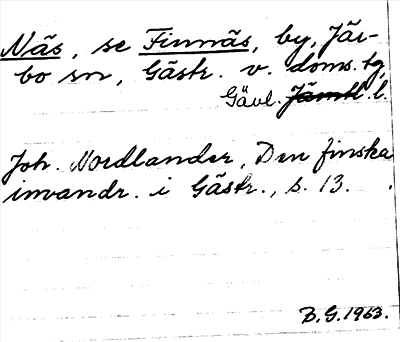 Näs, se Finnäs, by, Jär-
bo sn, Gästr. v. doms.tg,
Gävl. Jämtl. l.
Joh. Nordlander, Den finska
invandr. i Gästr., s. 13.
B.G. 1963.